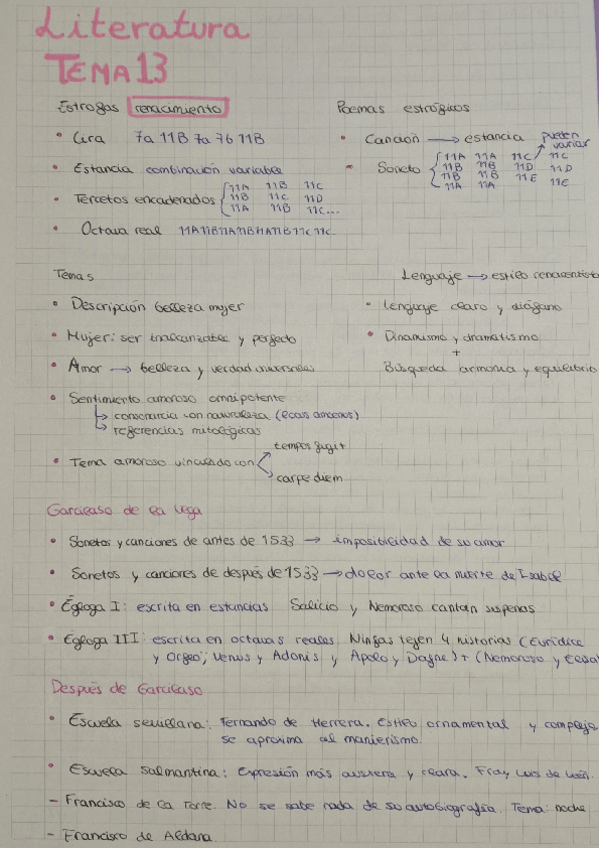 Literatura
TEMA 13
Estrofas renacimiento
• Lira 7a 11B 7a 7b 11B
• Estancia combinación variable
• Tercetos encadenados { 11A 11B 11C
11B 11C 11D
11A 11B 11C...
• Octava real 11A 11B 11A 11B 11A 11B 11C 11C
Poemas estróficos
• Canción → estancia pueden variar
• Soneto { 11A 11A 11C 11C
11B 11B 11D 11D
11B 11B 11E 11E
11A 11A
Temas
• Descripción belleza mujer
• Mujer: ser inalcanzable y perfecto
• Amor → belleza y verdad universales
• Sentimiento amoroso omnipotente
↳ consonancia con naturaleza (locus amoenus)
↳ referencias mitológicas
• Tema amoroso vinculado con tempus fugit
carpe diem
Lenguaje → estilo renacentista
• Lenguaje claro y diáfano
• Dinamismo y dramatismo
+
Búsqueda armonía y equilibrio
Garcilaso de la Vega
• Sonetos y canciones de antes de 1533 → imposibilidad de su amor
• Sonetos y canciones de después de 1533 → dolor ante la muerte de Isabel
• Égloga I: escrita en estancias Salicio y Nemoroso cantan sus penas
• Égloga III: escrita en octavas reales. Ninfas tejen 4 historias (Eurídice
y Orfeo; Venus y Adonis y Apolo y Dafne) + (Nemoroso y Elisa)
Después de Garcilaso
• Escuela sevillana: Fernando de Herrera. Estilo ornamental y complejo
se aproxima al manierismo.
• Escuela Salmantina: expresión más austera y clara. Fray Luis de León.
- Francisco de la Torre. No se sabe nada de su autobiografía. Tema: noche
- Francisco de Aldana